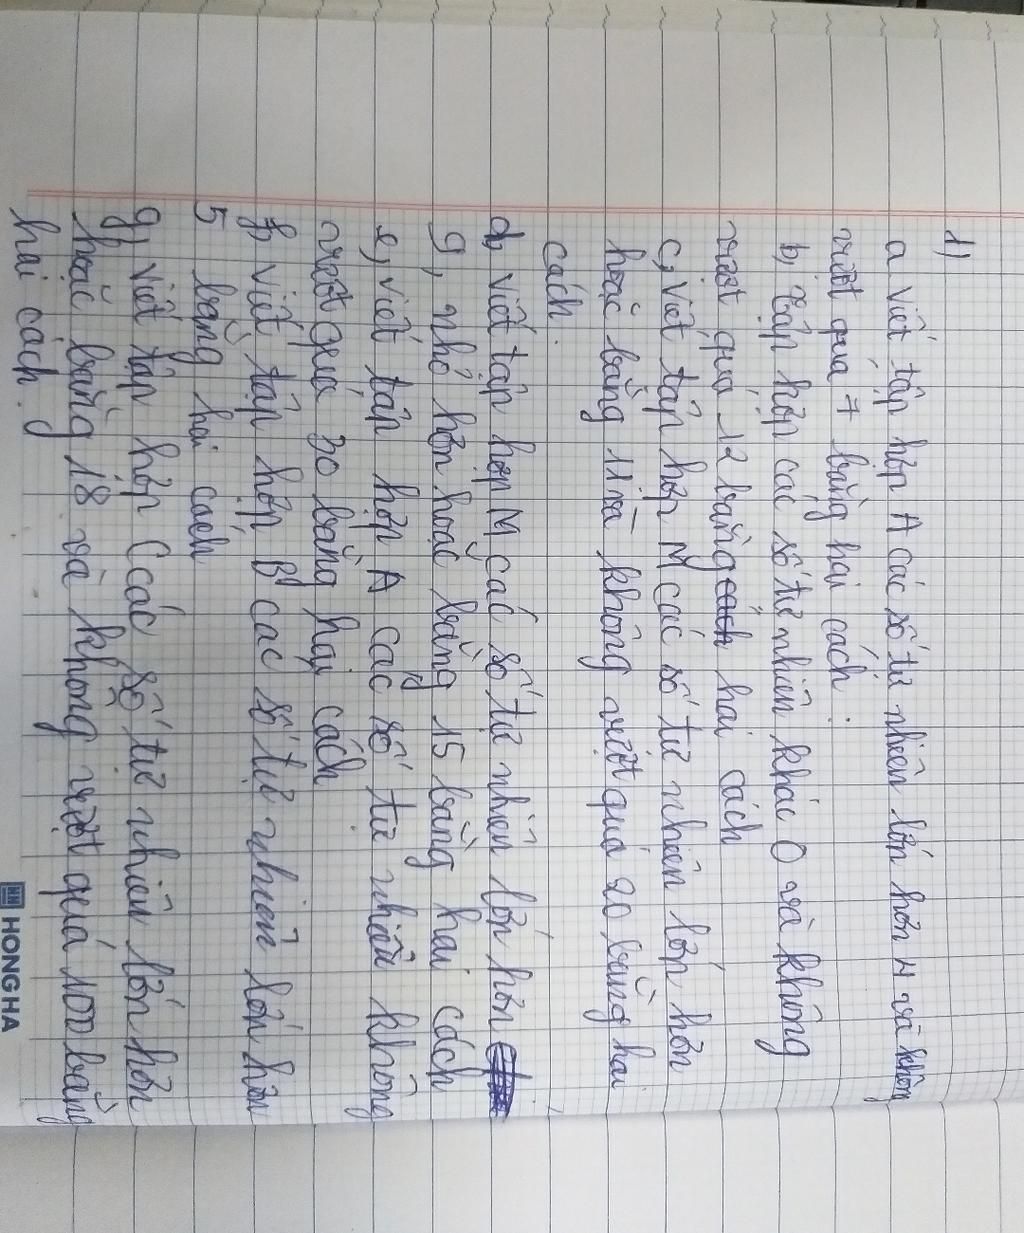 1)
a viết tập hợp A các số tự nhiên lớn hơn 4 và không
vượt quá 7 bằng hai cách.
b, tập hợp các số tự nhiên khác 0 và không
vượt quá 12 bằng cách hai cách
c, viết tập hợp M các số tự nhiên lớn hơn
hoặc bằng 11 và không vượt quá 20 bằng hai
cách.
d, viết tập hợp M các số tự nhiên lớn hơn
9, nhỏ hơn hoặc bằng 15 bằng hai cách
e, viết tập hợp A các số tự nhiên không
vượt quá 30 bằng hai cách
f, viết tập hợp B các số tự nhiên lớn hơn
5 bằng hai cách
g, viết tập hợp C các số tự nhiên lớn hơn
hoặc bằng 18 và không vượt quá 100 bằng
hai cách.
HONG HA